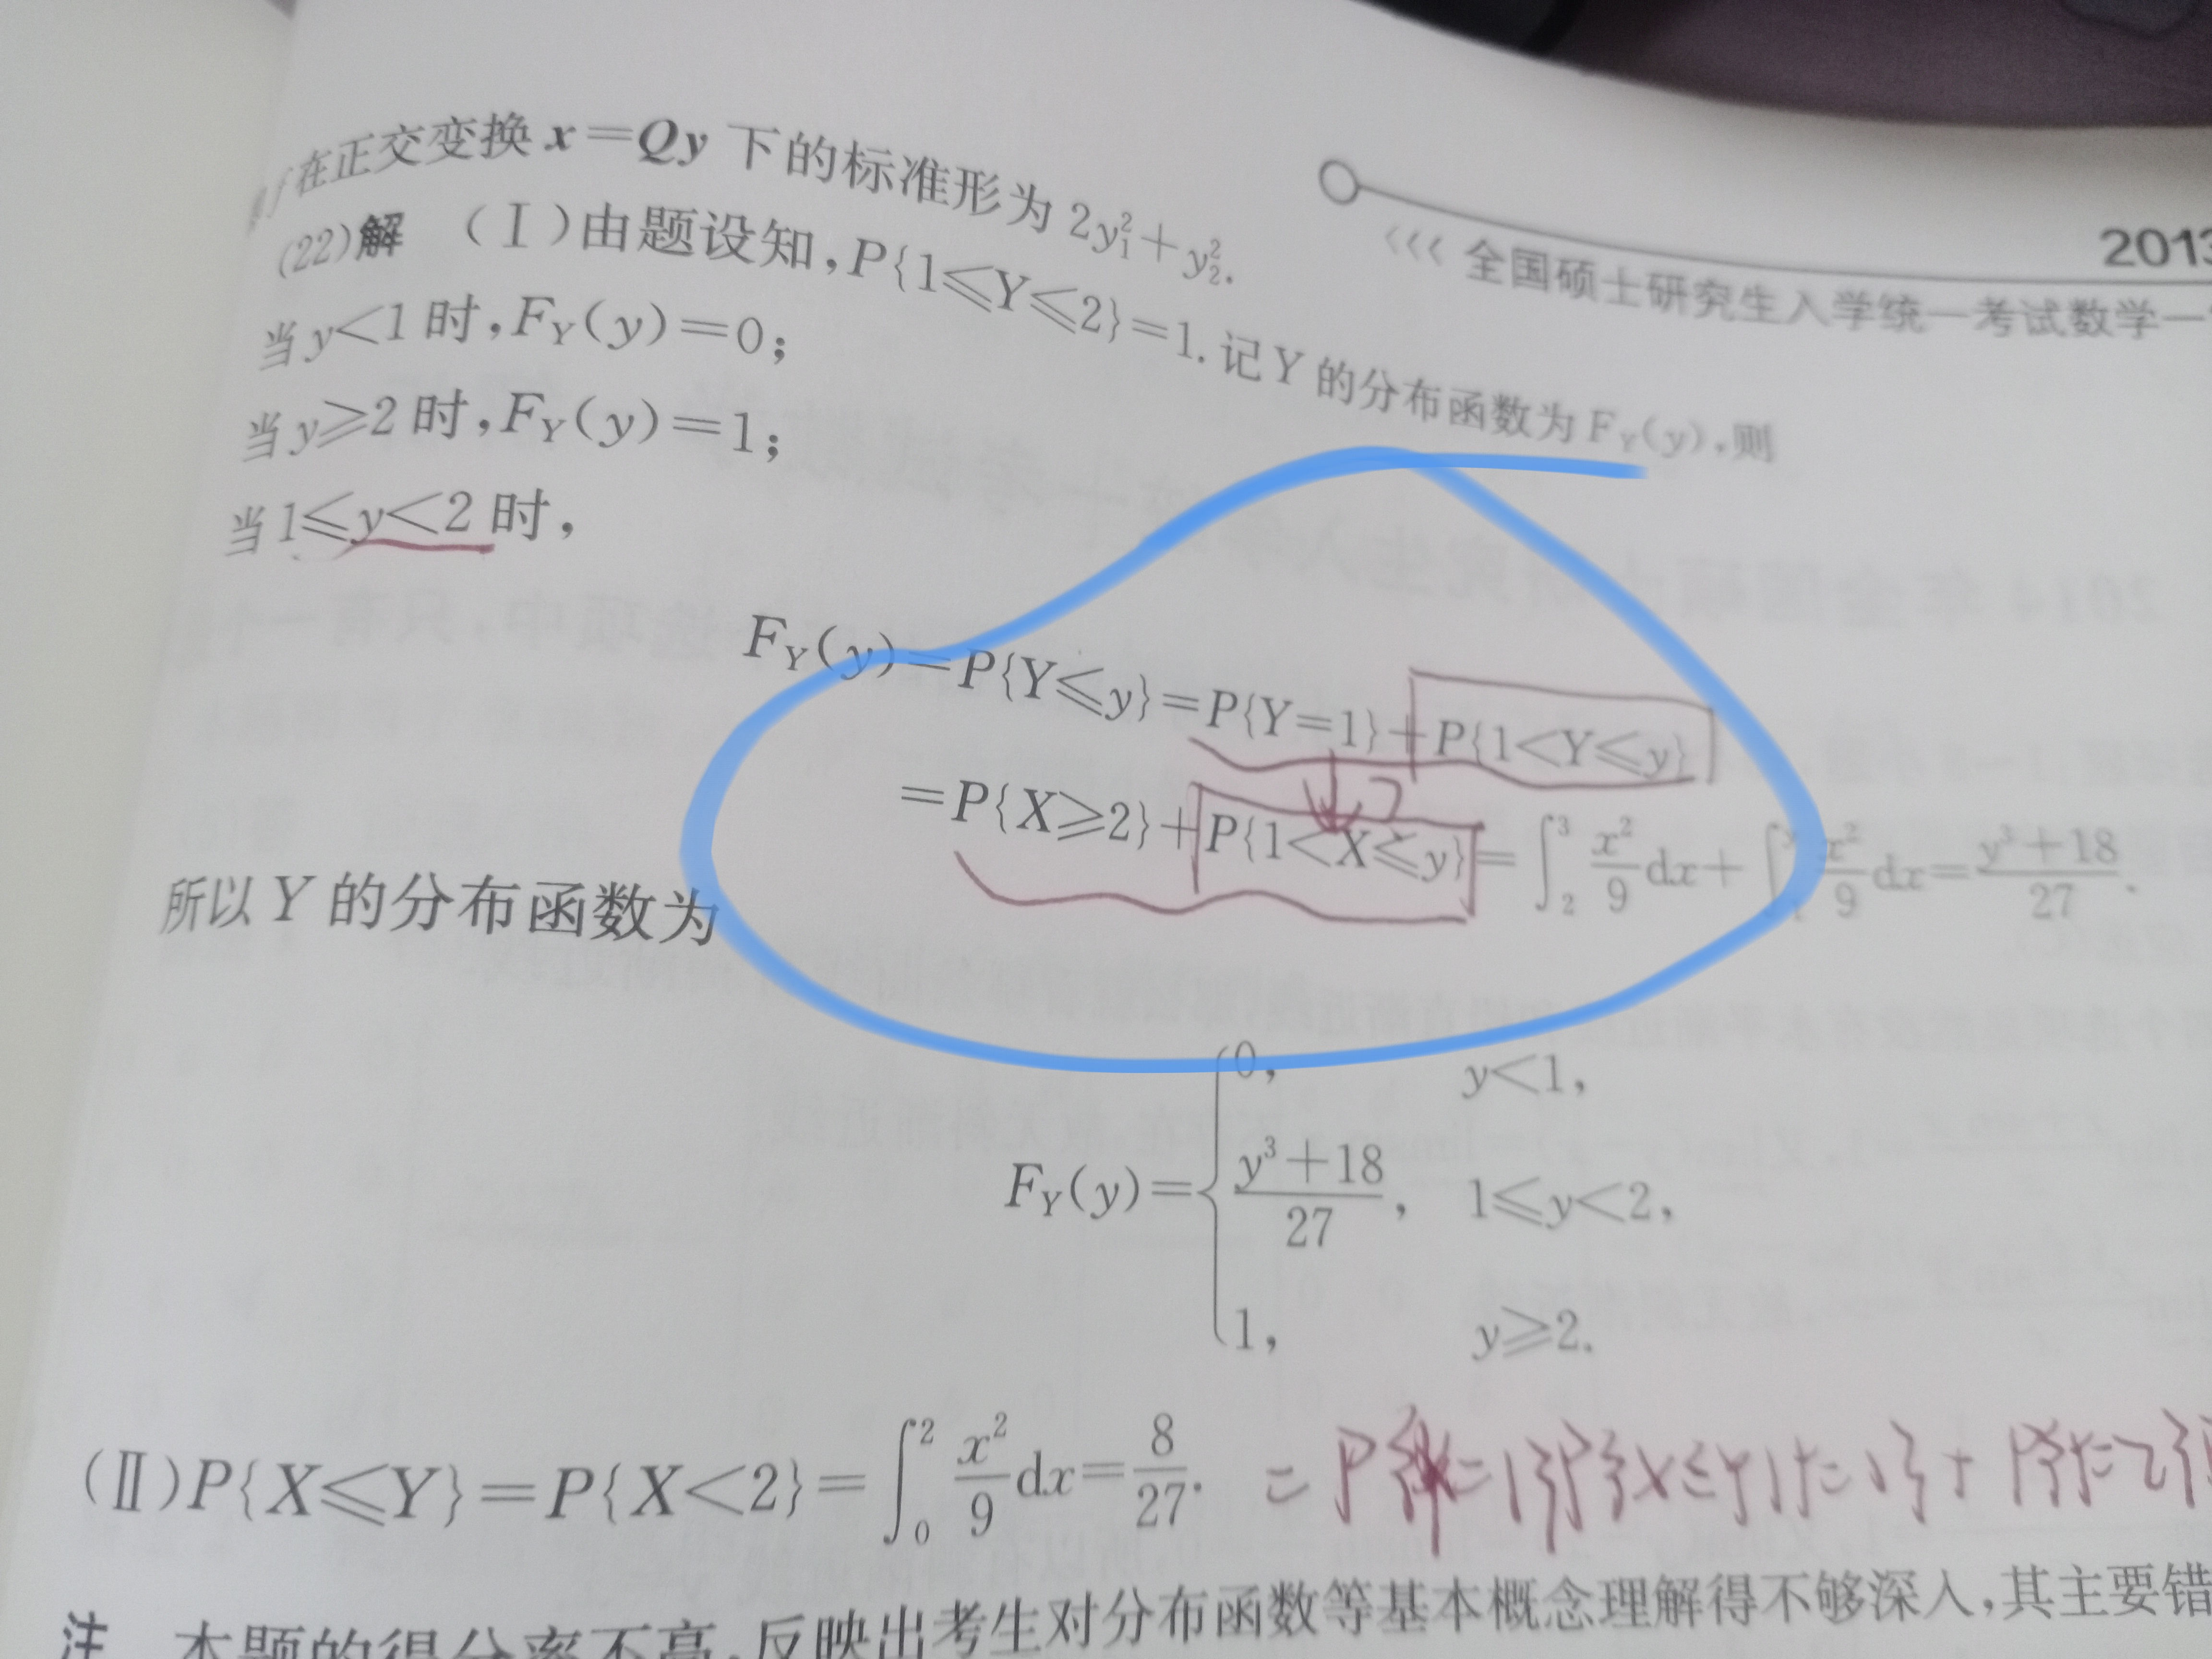 f在正交变换 x=Qy 下的标准形为 2y₁²+y₂².
2013
<<< 全国硕士研究生入学统一考试数学一
(22)解 (Ⅰ)由题设知,P{1≤Y≤2}=1.记Y的分布函数为F_Y(y),则
当y<1时,F_Y(y)=0;
当y≥2时,F_Y(y)=1;
当1≤y<2时,
F_Y(y)=P{Y≤y}=P{Y=1}+P{1<Y≤y}
=P{X≥2}+P{1<X≤y}=∫₂³ x²/9 dx+∫ x²/9 dx=(y³+18)/27.
?
所以Y的分布函数为
F_Y(y)={0, y<1,
(y³+18)/27, 1≤y<2,
1, y≥2.
(Ⅱ)P{X≤Y}=P{X<2}=∫₀² x²/9 dx=8/27. =P{Y=1}P{X≤Y|Y=1}+P{Y=2}
注 本题的得分率不高,反映出考生对分布函数等基本概念理解得不够深入,其主要错